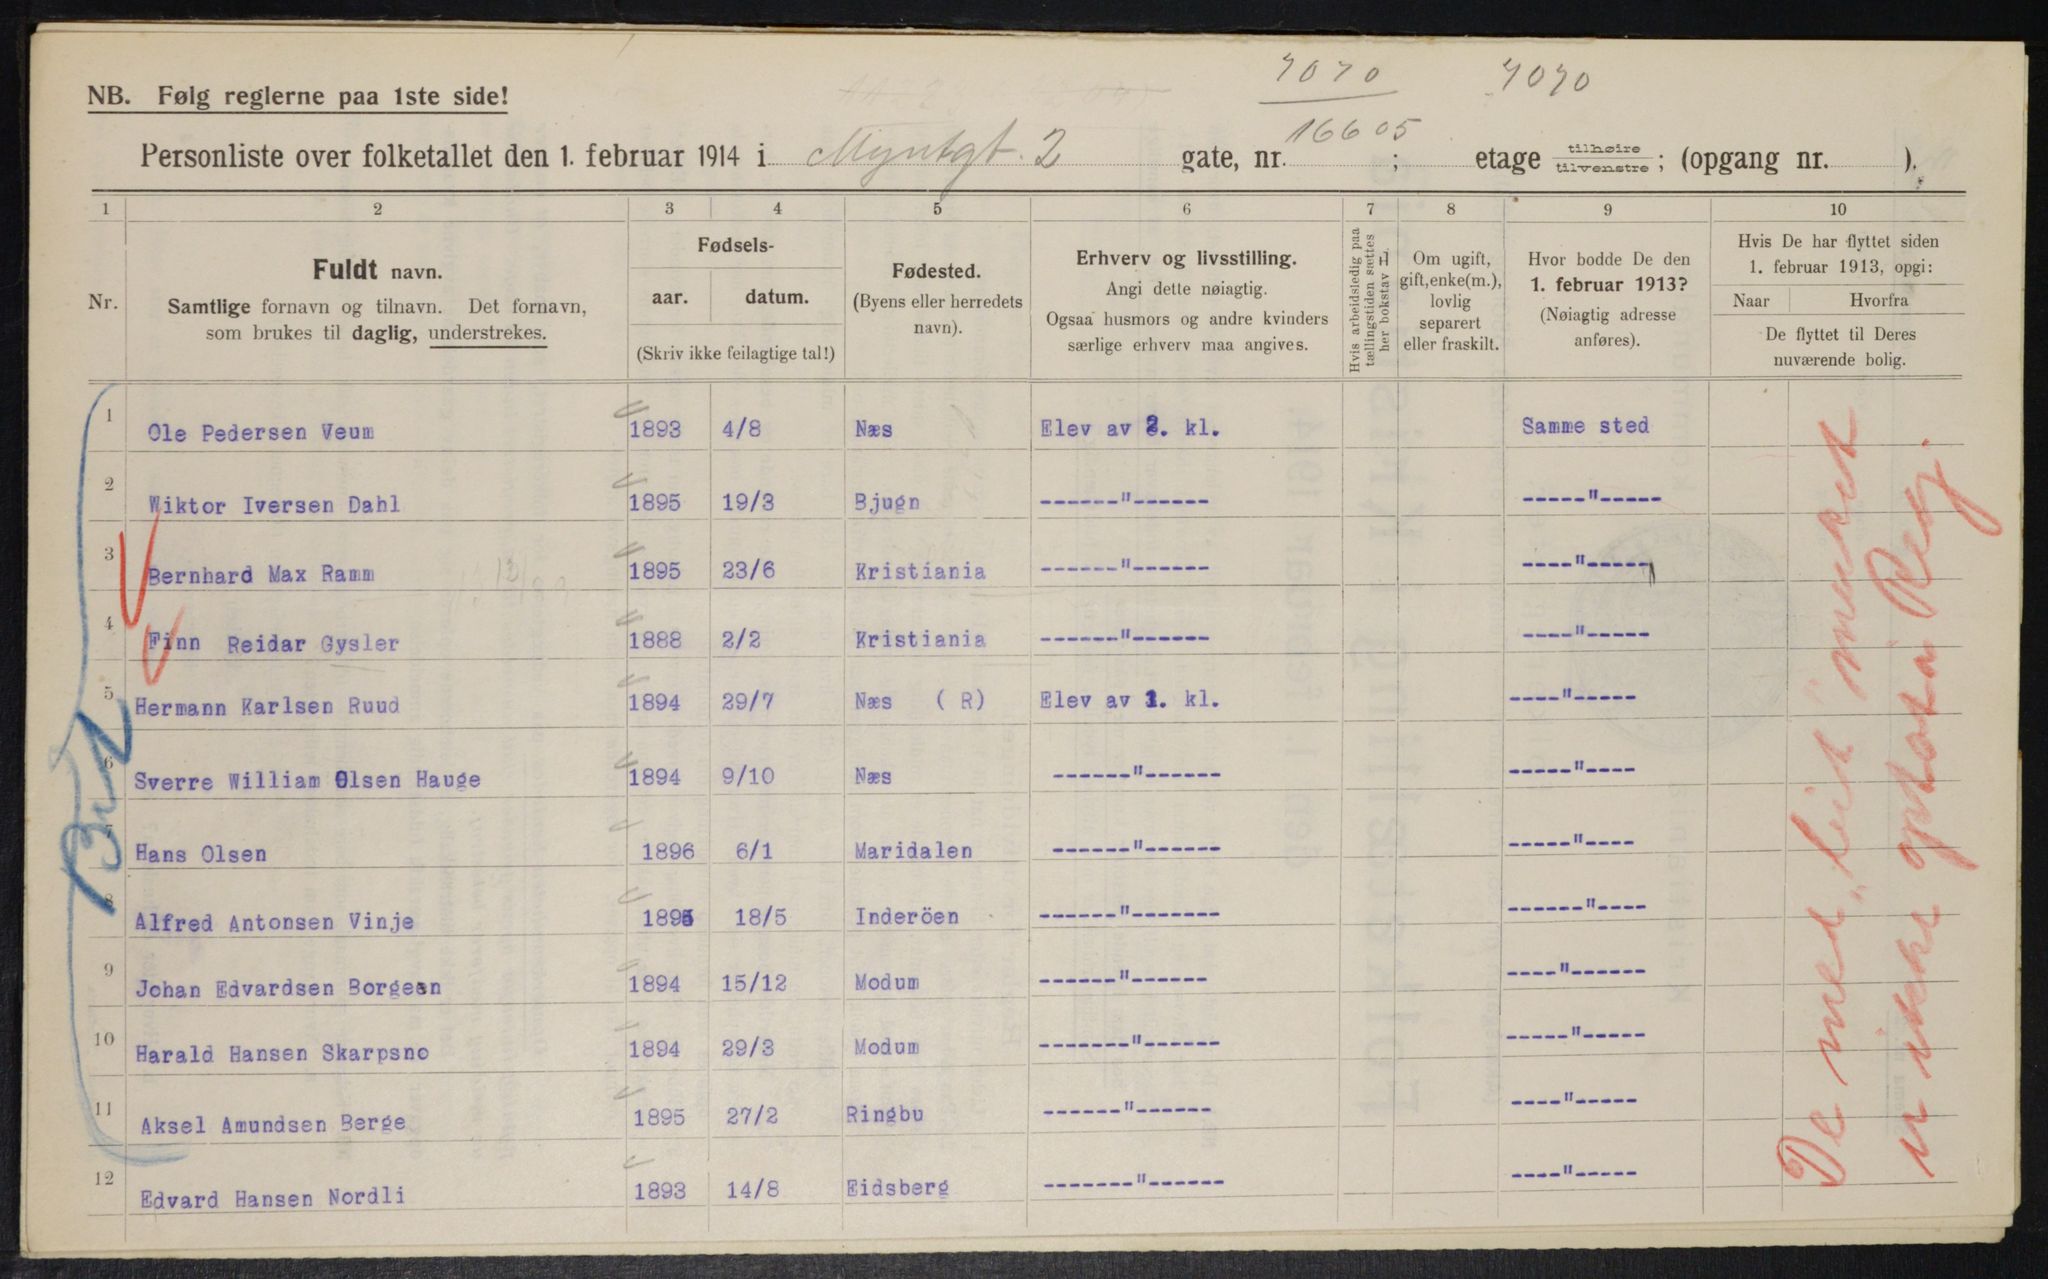 7070 7070
NB. Følg reglerne paa 1ste side!
16605
Personliste over folketallet den 1. februar 1914 i Myntgt. 2 gate, nr. ; etage tilhøire/tilvenstre; (opgang nr. ).
1 2 3 4 5 6 7 8 9 10
Nr.
Fuldt navn.
Samtlige fornavn og tilnavn. Det fornavn,
som brukes til daglig, understrekes.
Fødsels-
aar. datum.
(Skriv ikke feilagtige tal!)
Fødested.
(Byens eller herredets
navn).
Erhverv og livsstilling.
Angi dette nøiagtig.
Ogsaa husmors og andre kvinders
særlige erhverv maa angives.
Hvis arbeidsledig paa
tællingstiden sættes
her bokstav L.
Om ugift,
gift, enke(m.),
lovlig
separert
eller fraskilt.
Hvor bodde De den
1. februar 1913?
(Nøiagtig adresse
anføres).
Hvis De har flyttet siden
1. februar 1913, opgi:
Naar Hvorfra
De flyttet til Deres
nuværende bolig.
1 Ole Pedersen Veum 1893 4/8 Næs Elev av 2. kl. Samme sted
2 Wiktor Iversen Dahl 1895 19/3 Bjugn ------"------ -----"-----
3 Bernhard Max Ramm 1895 23/6 Kristiania ------"------ ----"-----
4 Finn Reidar Gysler 1888 2/2 Kristiania ------"------ ----"-----
5 Hermann Karlsen Ruud 1894 29/7 Næs ( R) Elev av 1. kl. ----"-----
6 Sverre William Olsen Hauge 1894 9/10 Næs ------"------ -----"----
7 Hans Olsen 1896 6/1 Maridalen ------"------ -----"----
8 Alfred Antonsen Vinje 1895 18/5 Inderöen ------"------- ------"----
9 Johan Edvardsen Borgesn 1894 15/12 Modum ------"------ ----"------
10 Harald Hansen Skarpsno 1894 29/3 Modum -------"------ -----"-----
11 Aksel Amundsen Berge 1895 27/2 Ringbu ------"------ ----"-----
12 Edvard Hansen Nordli 1893 14/8 Eidsberg -------"------ ----"-----
De med
ikke